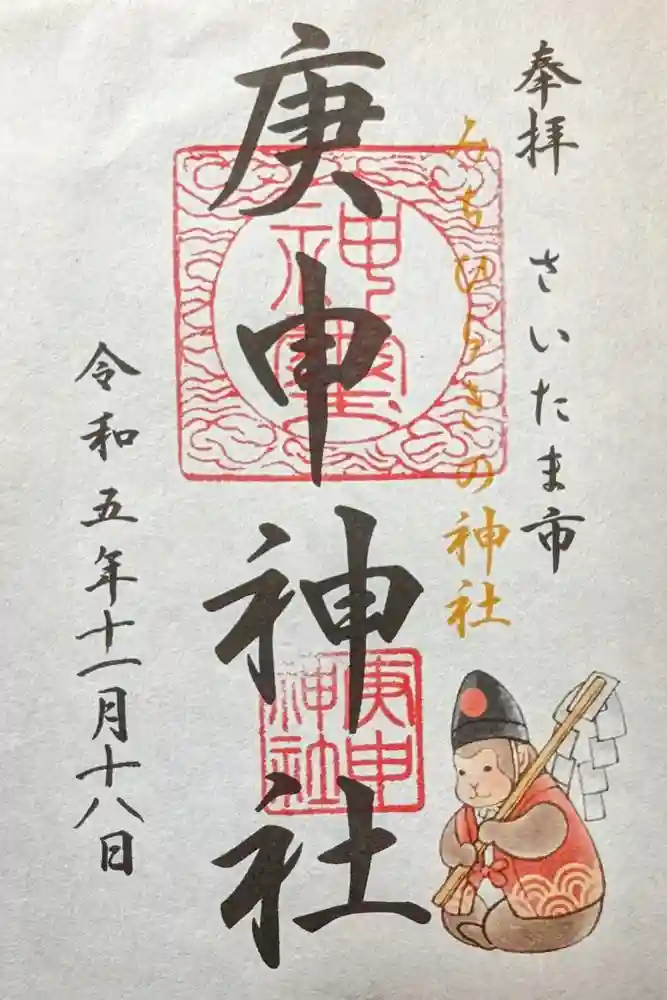 奉拝 さいたま市
みちひらきの神社
庚申神社
庚申
神社
令和五年十一月十八日